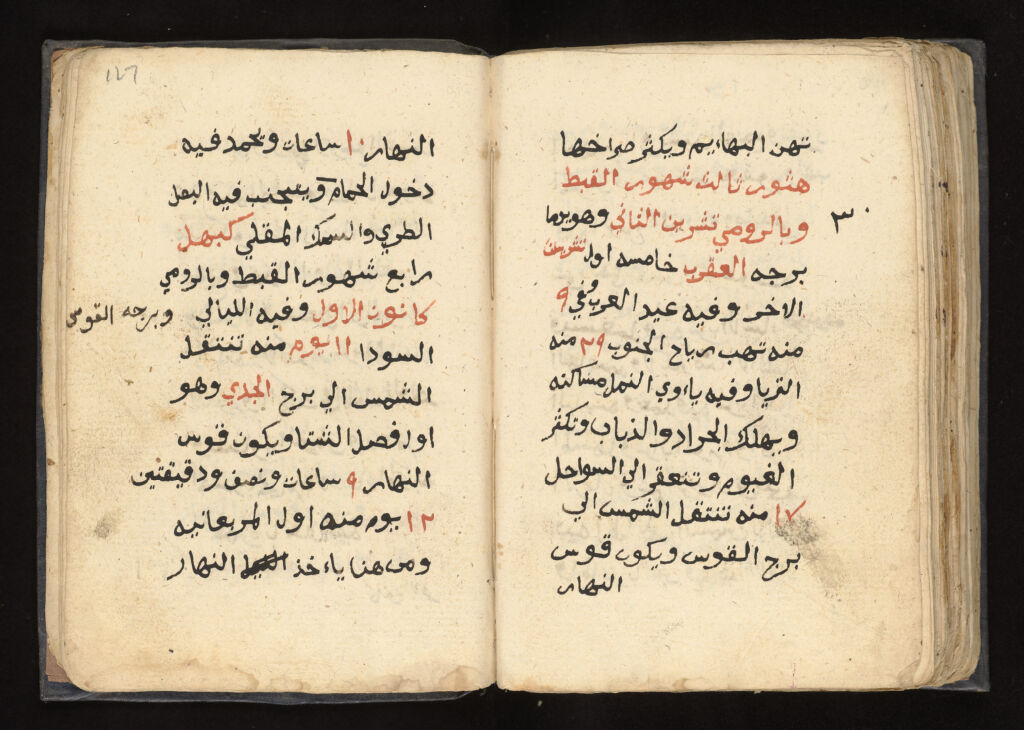 تهن البهايم ويكثر صراخها
هتور ثالث شهور القبط
وبالرومي تشرين الثاني وهو يوما
٣٠
برجه العقرب خامسه اول تشرين
الاخر وفيه عيد العرب وفي ٩
منه تهب رياح الجنوب ٢٩ منه
الثريا وفيه ياوي النمل مساكنه
ويهلك الجراد والذباب وتكثر
الغيوم وتنعقر الي السواحل
١٧ منه تنتقل الشمس الي
برج القوس ويكون قوس
النهار
١٢٦
النهار ١٠ ساعات وتحمد فيه
دخول الحمام ويجتنب فيه البصل
الطري والسمك المقلي كيهل
رابع شهور القبط وبالرومي
كانون الاول وفيه الليالي
وبرجه القوس
السودا ١١ يوم منه تنتقل
الشمس الي برج الجدي وهو
اول فصل الشتا ويكون قوس
النهار ٩ ساعات ونصف ودقيقتين
١٢ يوم منه اول المربعانيه
ومن هنا ياءخذ النهار